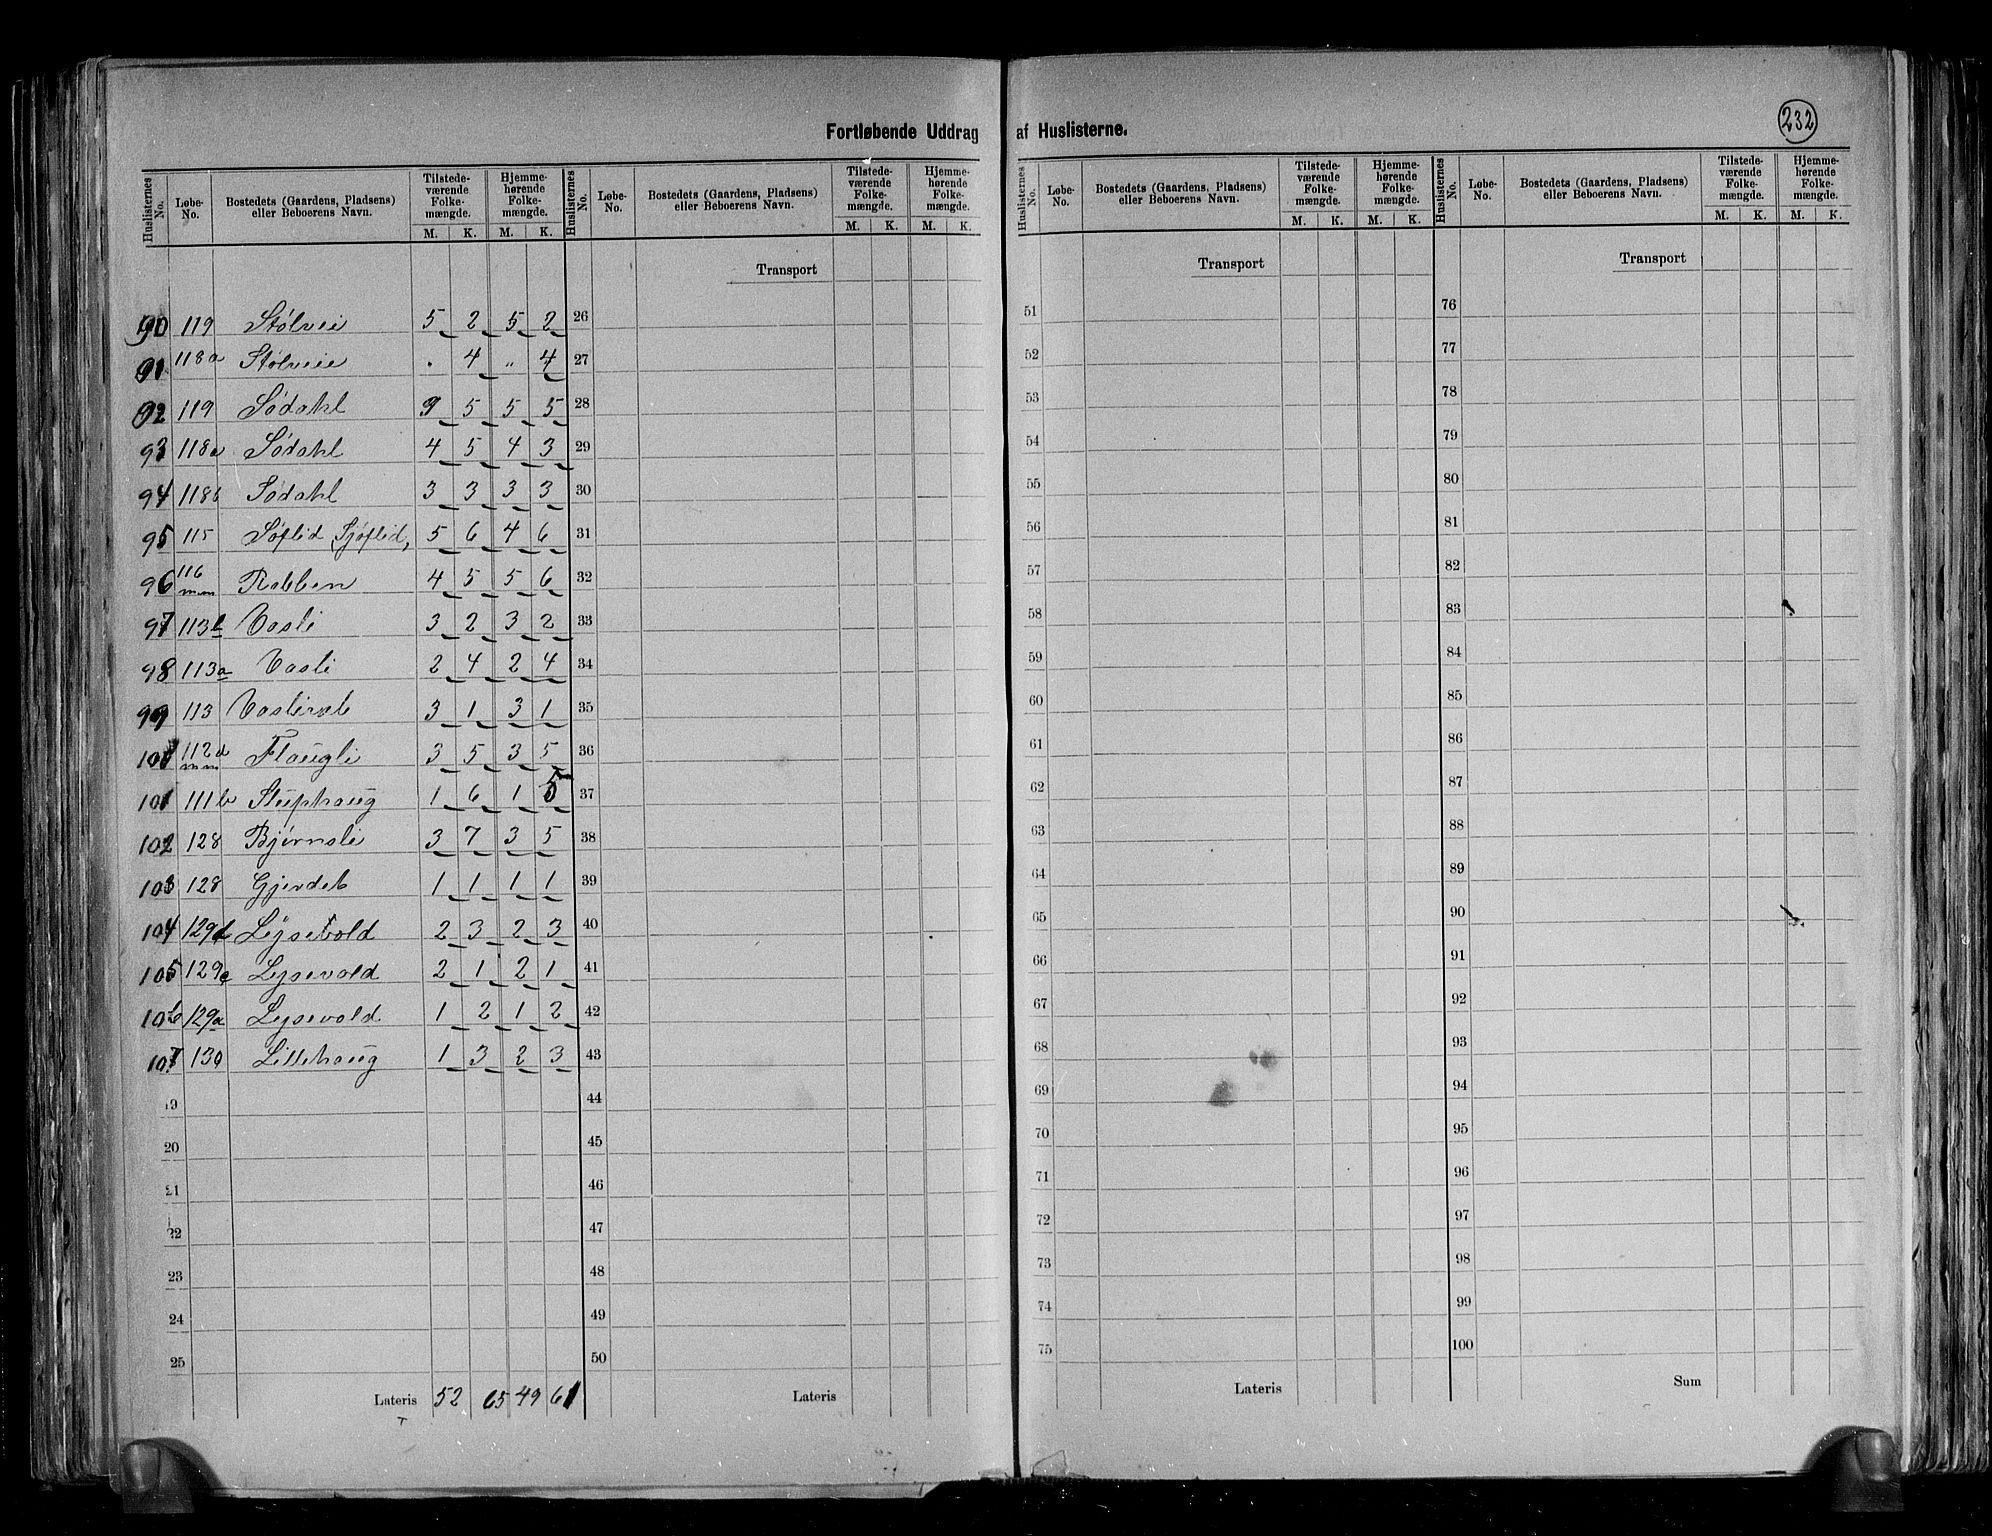 Fortløbende Uddrag af Huslisterne.
232
Huslisternes No. Løbe-No. Bostedets (Gaardens, Pladsens) eller Beboerens Navn. Tilstedeværende Folkemængde. M. K. Hjemmehørende Folkemængde. M. K.
Huslisternes No. Løbe-No. Bostedets (Gaardens, Pladsens) eller Beboerens Navn. Tilstedeværende Folkemængde. M. K. Hjemmehørende Folkemængde. M. K.
Huslisternes No. Løbe-No. Bostedets (Gaardens, Pladsens) eller Beboerens Navn. Tilstedeværende Folkemængde. M. K. Hjemmehørende Folkemængde. M. K.
Huslisternes No. Løbe-No. Bostedets (Gaardens, Pladsens) eller Beboerens Navn. Tilstedeværende Folkemængde. M. K. Hjemmehørende Folkemængde. M. K.
Transport Transport Transport
90 119 Stølveie 5 2 5 2 26 51 76
91 118a Stølveie . 4 " 4 27 52 77
92 119 Sødahl 9 5 5 5 28 53 78
93 118a Sødahl 4 5 4 3 29 54 79
94 118b Sødahl 3 3 3 3 30 55 80
95 115 Søflid (Sjøflid) 5 6 4 6 31 56 81
96 116 m.m Rabben 4 5 5 6 32 57 82
97 113b Vasli 3 2 3 2 33 58 83
98 113a Vasli 2 4 2 4 34 59 84
99 113 3 1 3 1 35 60 85
100 112d m.m Flaugli 3 5 3 5 36 61 86
101 111b Stuphaug 1 6 1 5 37 62 87
102 128 Bjørnsli 3 7 3 5 38 63 88
103 128 Gjerdet 1 1 1 1 39 64 89
104 129d Lysevold 2 3 2 3 40 65 90
105 129c Lysevold 2 1 2 1 41 66 91
106 129a Lysevold 1 2 1 2 42 67 92
107 130 Lillehaug 1 3 2 3 43 68 93
19 44 69 94
20 45 70 95
21 46 71 96
22 47 72 97
23 48 73 98
24 49 74 99
25 50 75 100
Lateris 52 65 49 61 Lateris Lateris Sum